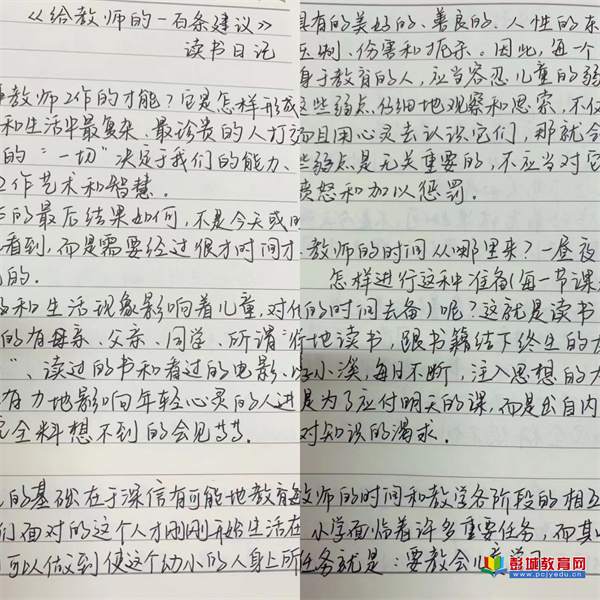 《给教师的一百条建议》
读书日记
教师工作的才能？它是怎样形成
和生活中最复杂、最珍贵的人打交
的“一切”决定于我们的能力、
工作艺术和智慧．
后的最后结果如何，不是今天或明
看到，而是需要经过很长时间才
的．
和生活现象影响着儿童，对他
的有母亲、父亲、同学、所谓“街
”、读过的书和看过的电影、
有力地影响年轻心灵的人进
完全料想不到的会见等等．
的基础在于深信有可能地教育每
们面对的这个人才刚刚开始生活在
可以做到使这个幼小的人身上所
具有的美好的、善良的、人性的东
压制、伤害和扼杀。因此，每一个
身于教育的人，应当容忍儿童的弱
这些弱点仔细地观察和思索，不仅
而且用心灵去认识它们，那就会
些弱点是无关重要的，不应当对它
愤怒和加以惩罚．
教师的时间从哪里来？一昼夜
怎样进行这种准备（每一节课
的时间去备）呢？这就是读书
地读书，跟书籍结下终生的友
小溪，每日不断，注入思想的大
是为了应付明天的课，而是出自内
对知识的渴求．
教师的时间和教学各阶段的相互
小学面临着许多重要任务，而其
任务就是：要教会儿童学习
彭城教育网
www.pcjyedu.cn